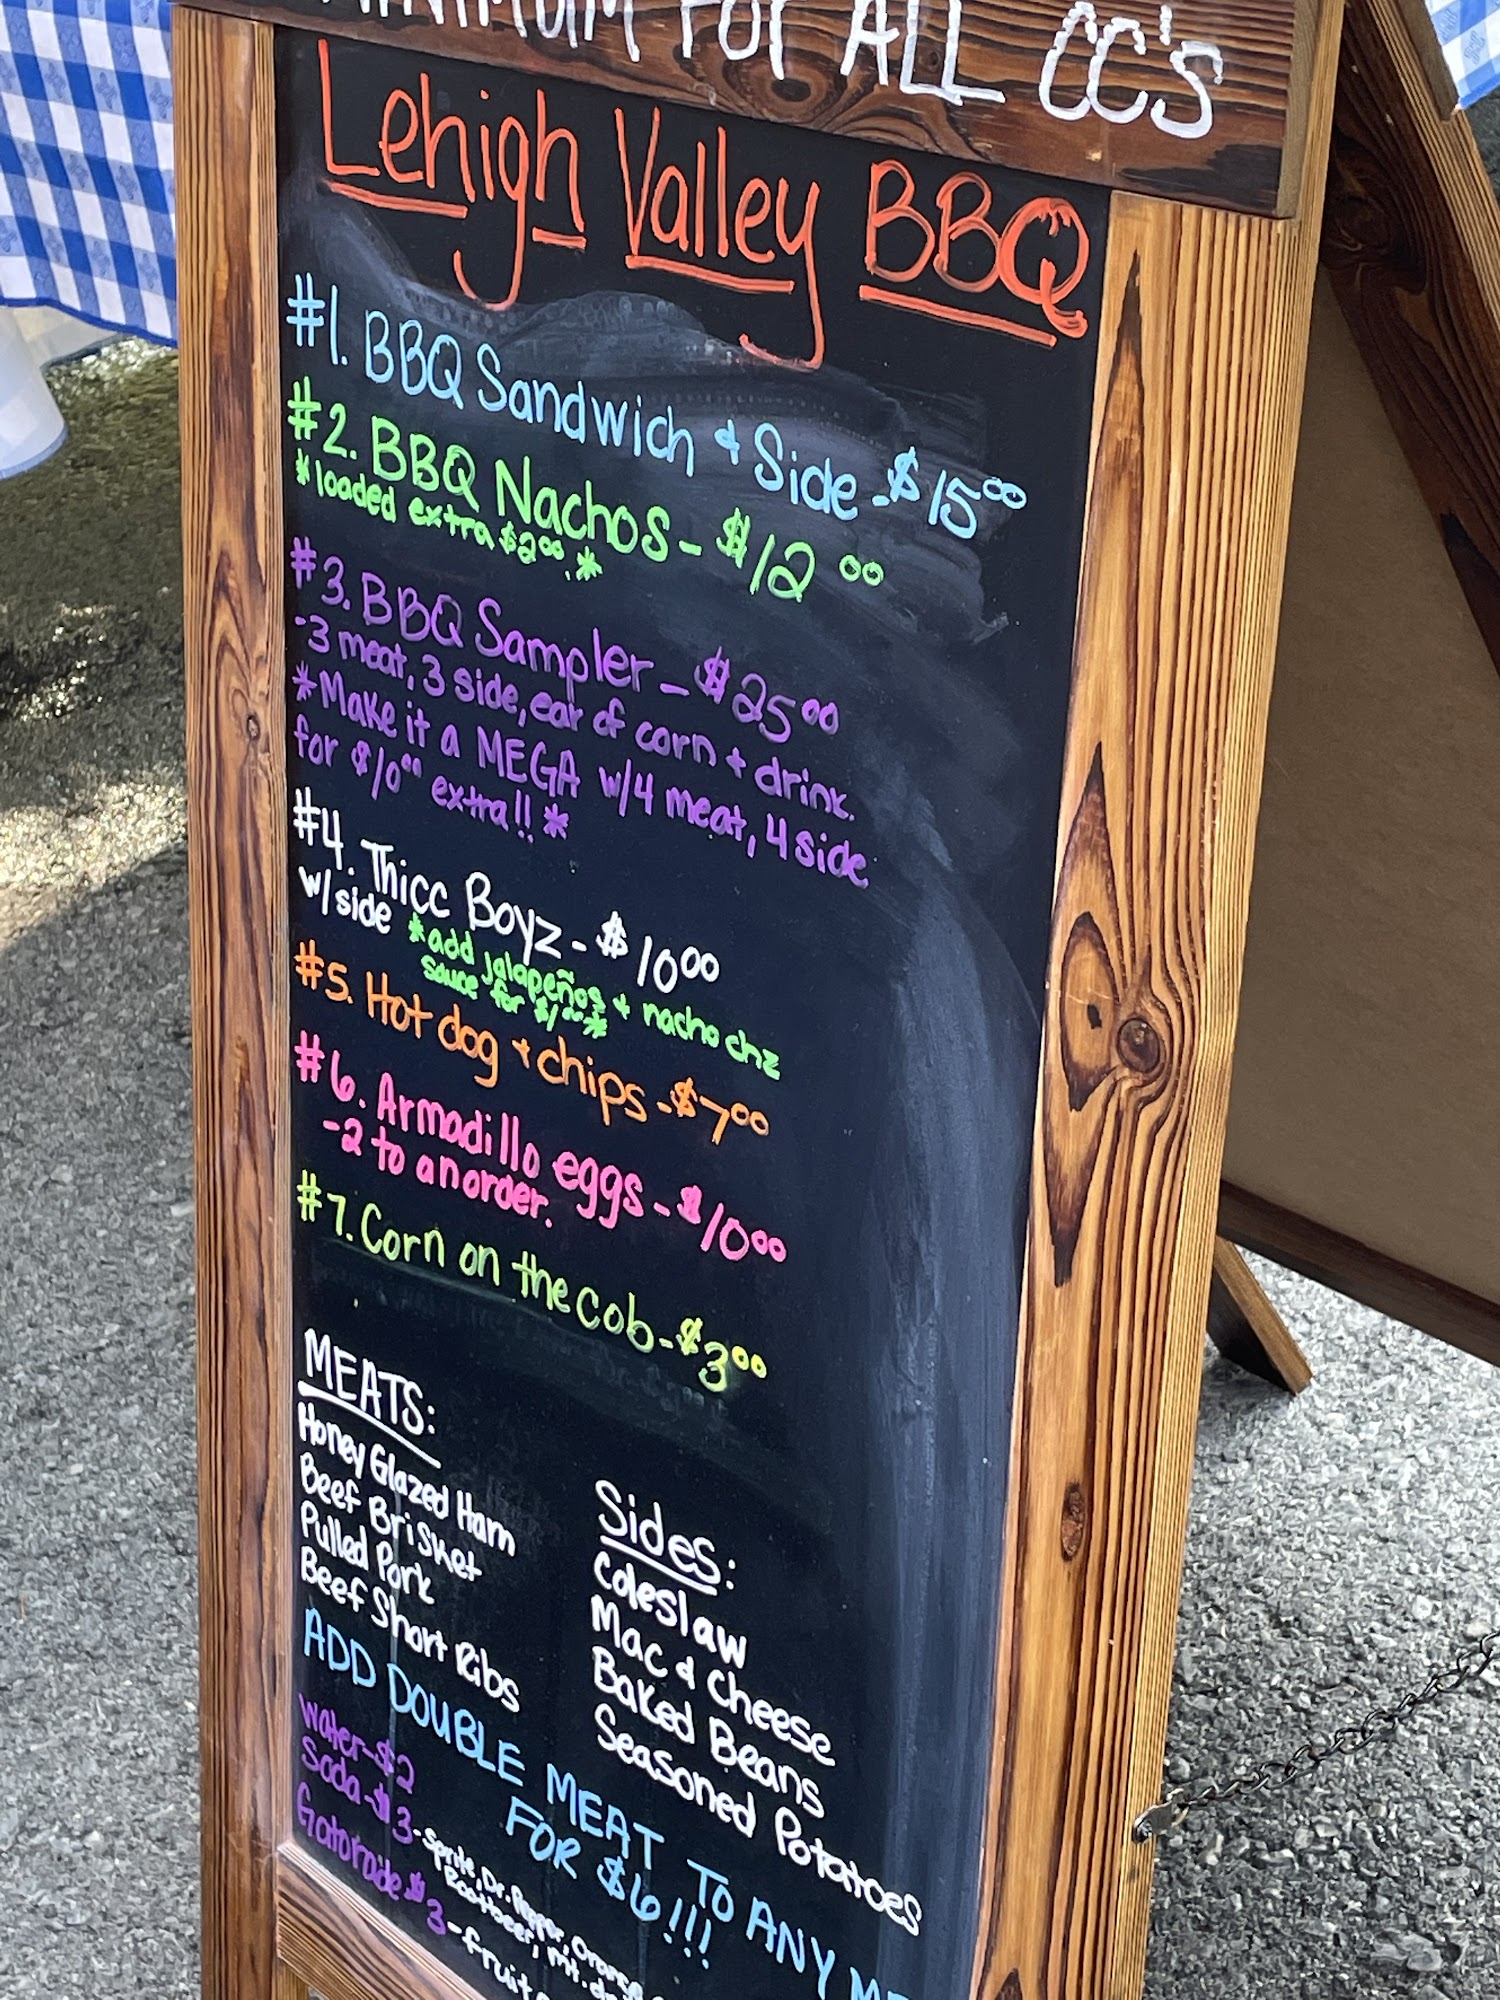 MINIMUM FOR ALL CC'S
Lehigh Valley BBQ
#1. BBQ Sandwich + Side - $15.00
#2. BBQ Nachos - $12.00
*loaded extra $2.00.*
#3. BBQ Sampler - $25.00
-3 meat, 3 side, ear of corn + drink.
*Make it a MEGA w/4 meat, 4 side
for $10.00 extra!!*
#4. Thicc Boyz - $10.00
w/side *add jalapeños + nacho chz
sauce for $1.00*
#5. Hot dog + chips - $7.00
#6. Armadillo eggs - $10.00
-2 to an order.
#7. Corn on the cob - $3.00
MEATS:
Honey Glazed Ham
Beef Brisket
Pulled Pork
Beef Short Ribs
Sides:
Coleslaw
Mac & Cheese
Baked Beans
Seasoned Potatoes
ADD DOUBLE MEAT TO ANY
FOR $6!!!
Water - $2
Soda - $3 - Sprite, Dr. Pepper, Orange
Rootbeer, mt.
Gatorade $3 - fruit